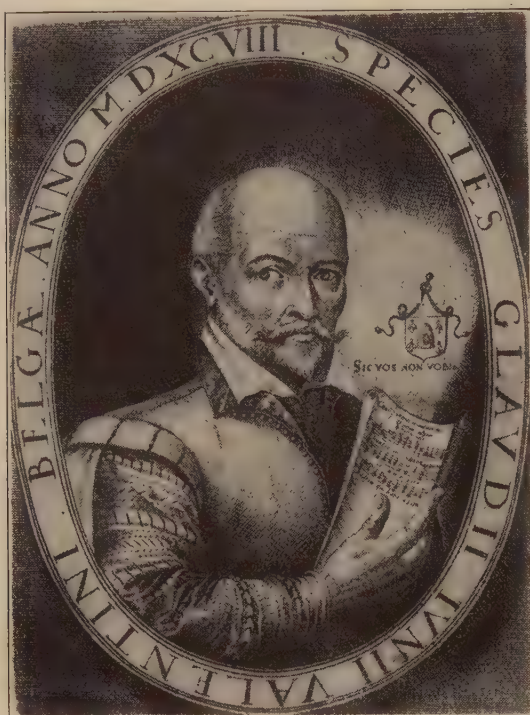 SPECIES GLAVDII IVNII VALENTINI BELGÆ ANNO M.DXCVIII.
SIC VOS NON VOBIS